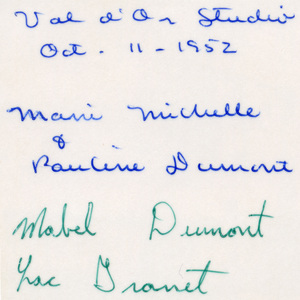 Val d'Or Studio
Oct. 11-1952
Marie Michelle
&
Pauline Dumont
Mabel Dumont
Lac Granet